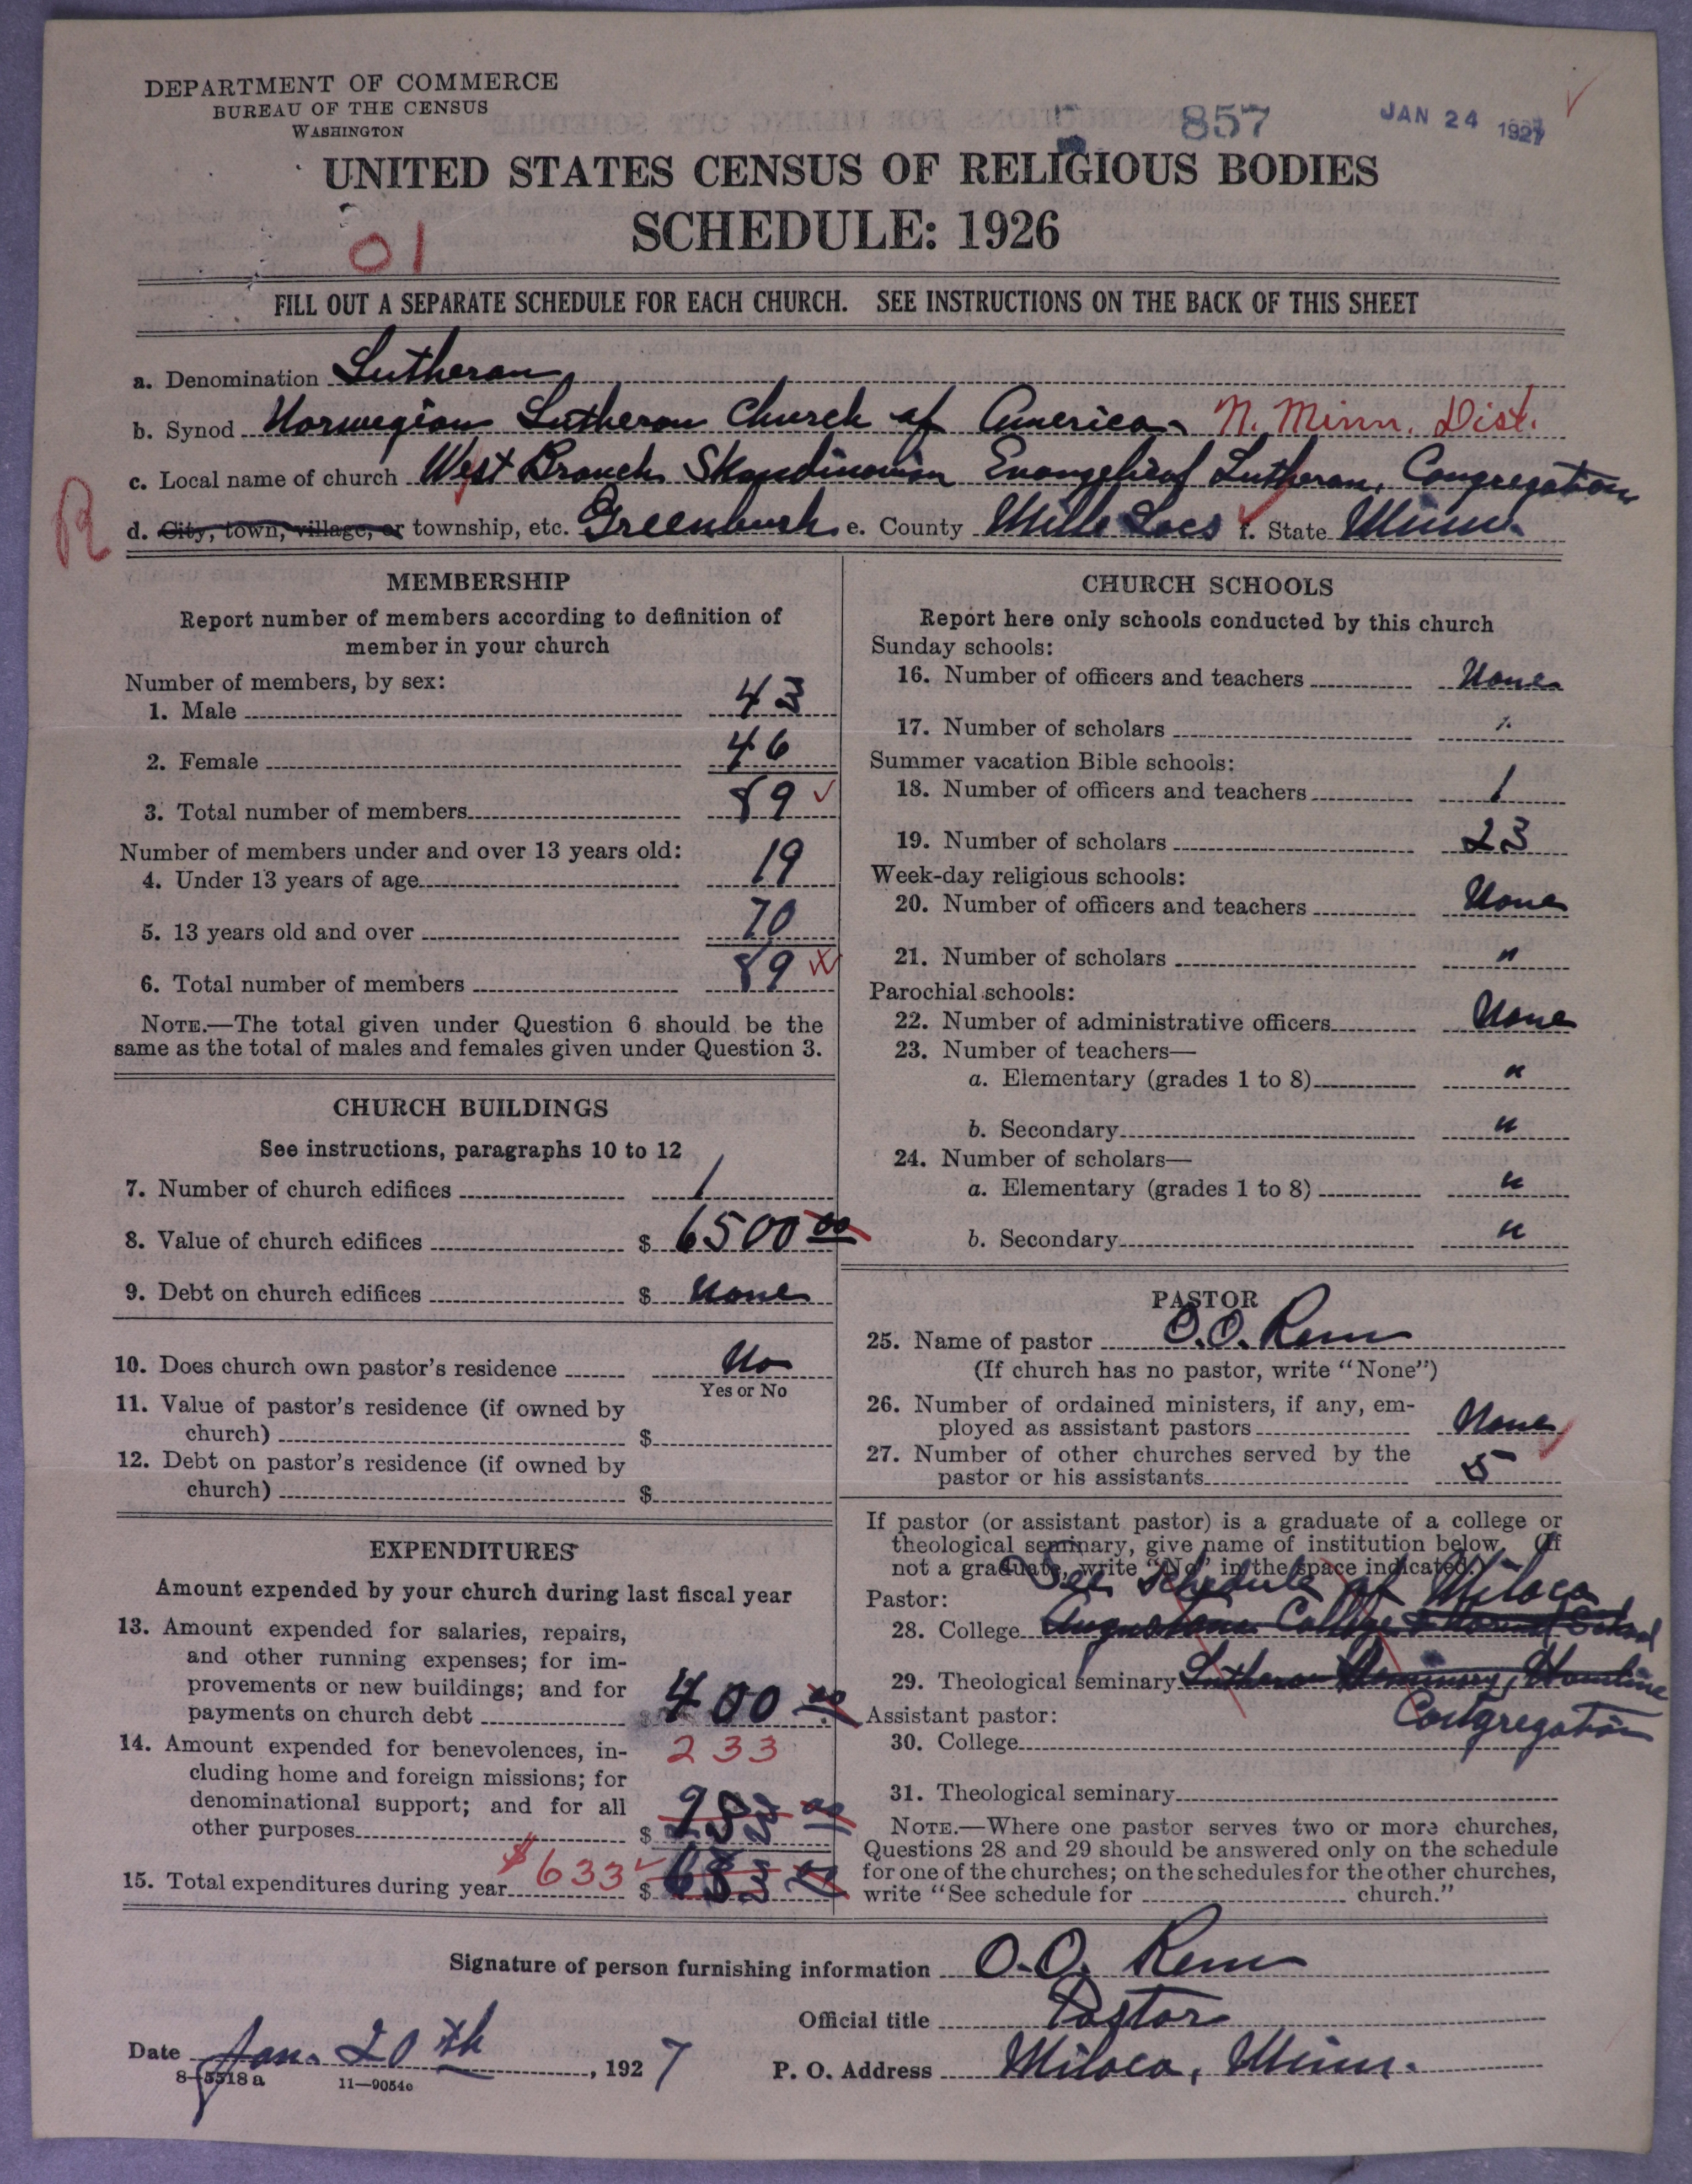 DEPARTMENT OF COMMERCE
BUREAU OF THE CENSUS
WASHINGTON
857
JAN 24 1927
UNITED STATES CENSUS OF RELIGIOUS BODIES
SCHEDULE: 1926
01
FILL OUT A SEPARATE SCHEDULE FOR EACH CHURCH. SEE INSTRUCTIONS ON THE BACK OF THIS SHEET
a. Denomination Lutheran
b. Synod Norwegian Lutheran Church of America N. Minn. Dist.
c. Local name of church West Branch Skandinavian Evangelical Lutheran Congregation
R
d. City, town, village, or township, etc. Greenbush e. County Mille Lacs f. State Minn.
MEMBERSHIP
Report number of members according to definition of
member in your church
Number of members, by sex:
1. Male 43
2. Female 46
3. Total number of members 89
Number of members under and over 13 years old:
4. Under 13 years of age 19
5. 13 years old and over 70
6. Total number of members 89
NOTE.—The total given under Question 6 should be the
same as the total of males and females given under Question 3.
CHURCH BUILDINGS
See instructions, paragraphs 10 to 12
7. Number of church edifices 1
8. Value of church edifices $ 6500 00
9. Debt on church edifices $ None
10. Does church own pastor's residence No
Yes or No
11. Value of pastor's residence (if owned by
church) $
12. Debt on pastor's residence (if owned by
church) $
EXPENDITURES
Amount expended by your church during last fiscal year
13. Amount expended for salaries, repairs,
and other running expenses; for im-
provements or new buildings; and for
payments on church debt $ 400 00
14. Amount expended for benevolences, in-
233
cluding home and foreign missions; for
denominational support; and for all
other purposes $
15. Total expenditures during year $633 $
CHURCH SCHOOLS
Report here only schools conducted by this church
Sunday schools:
16. Number of officers and teachers None
17. Number of scholars "
Summer vacation Bible schools:
18. Number of officers and teachers 1
19. Number of scholars 23
Week-day religious schools:
20. Number of officers and teachers None
21. Number of scholars "
Parochial schools:
22. Number of administrative officers None
23. Number of teachers—
a. Elementary (grades 1 to 8) "
b. Secondary "
24. Number of scholars—
a. Elementary (grades 1 to 8) "
b. Secondary "
PASTOR
25. Name of pastor O.O. Rem
(If church has no pastor, write "None")
26. Number of ordained ministers, if any, em-
ployed as assistant pastors None
27. Number of other churches served by the
pastor or his assistants 5
If pastor (or assistant pastor) is a graduate of a college or
theological seminary, give name of institution below. (If
not a graduate, write "No" in the space indicated.)
See Schedule of Milaca
Pastor:
28. College Augustana College & Normal School
29. Theological seminary Luthern Seminary, Hamline
Congregation
Assistant pastor:
30. College
31. Theological seminary
NOTE.—Where one pastor serves two or more churches,
Questions 28 and 29 should be answered only on the schedule
for one of the churches; on the schedules for the other churches,
write "See schedule for church."
Signature of person furnishing information O.O. Rem
Official title Pastor
Date Jan. 20th, 1927
P. O. Address Milaca, Minn.
8—5518a 11—9054c